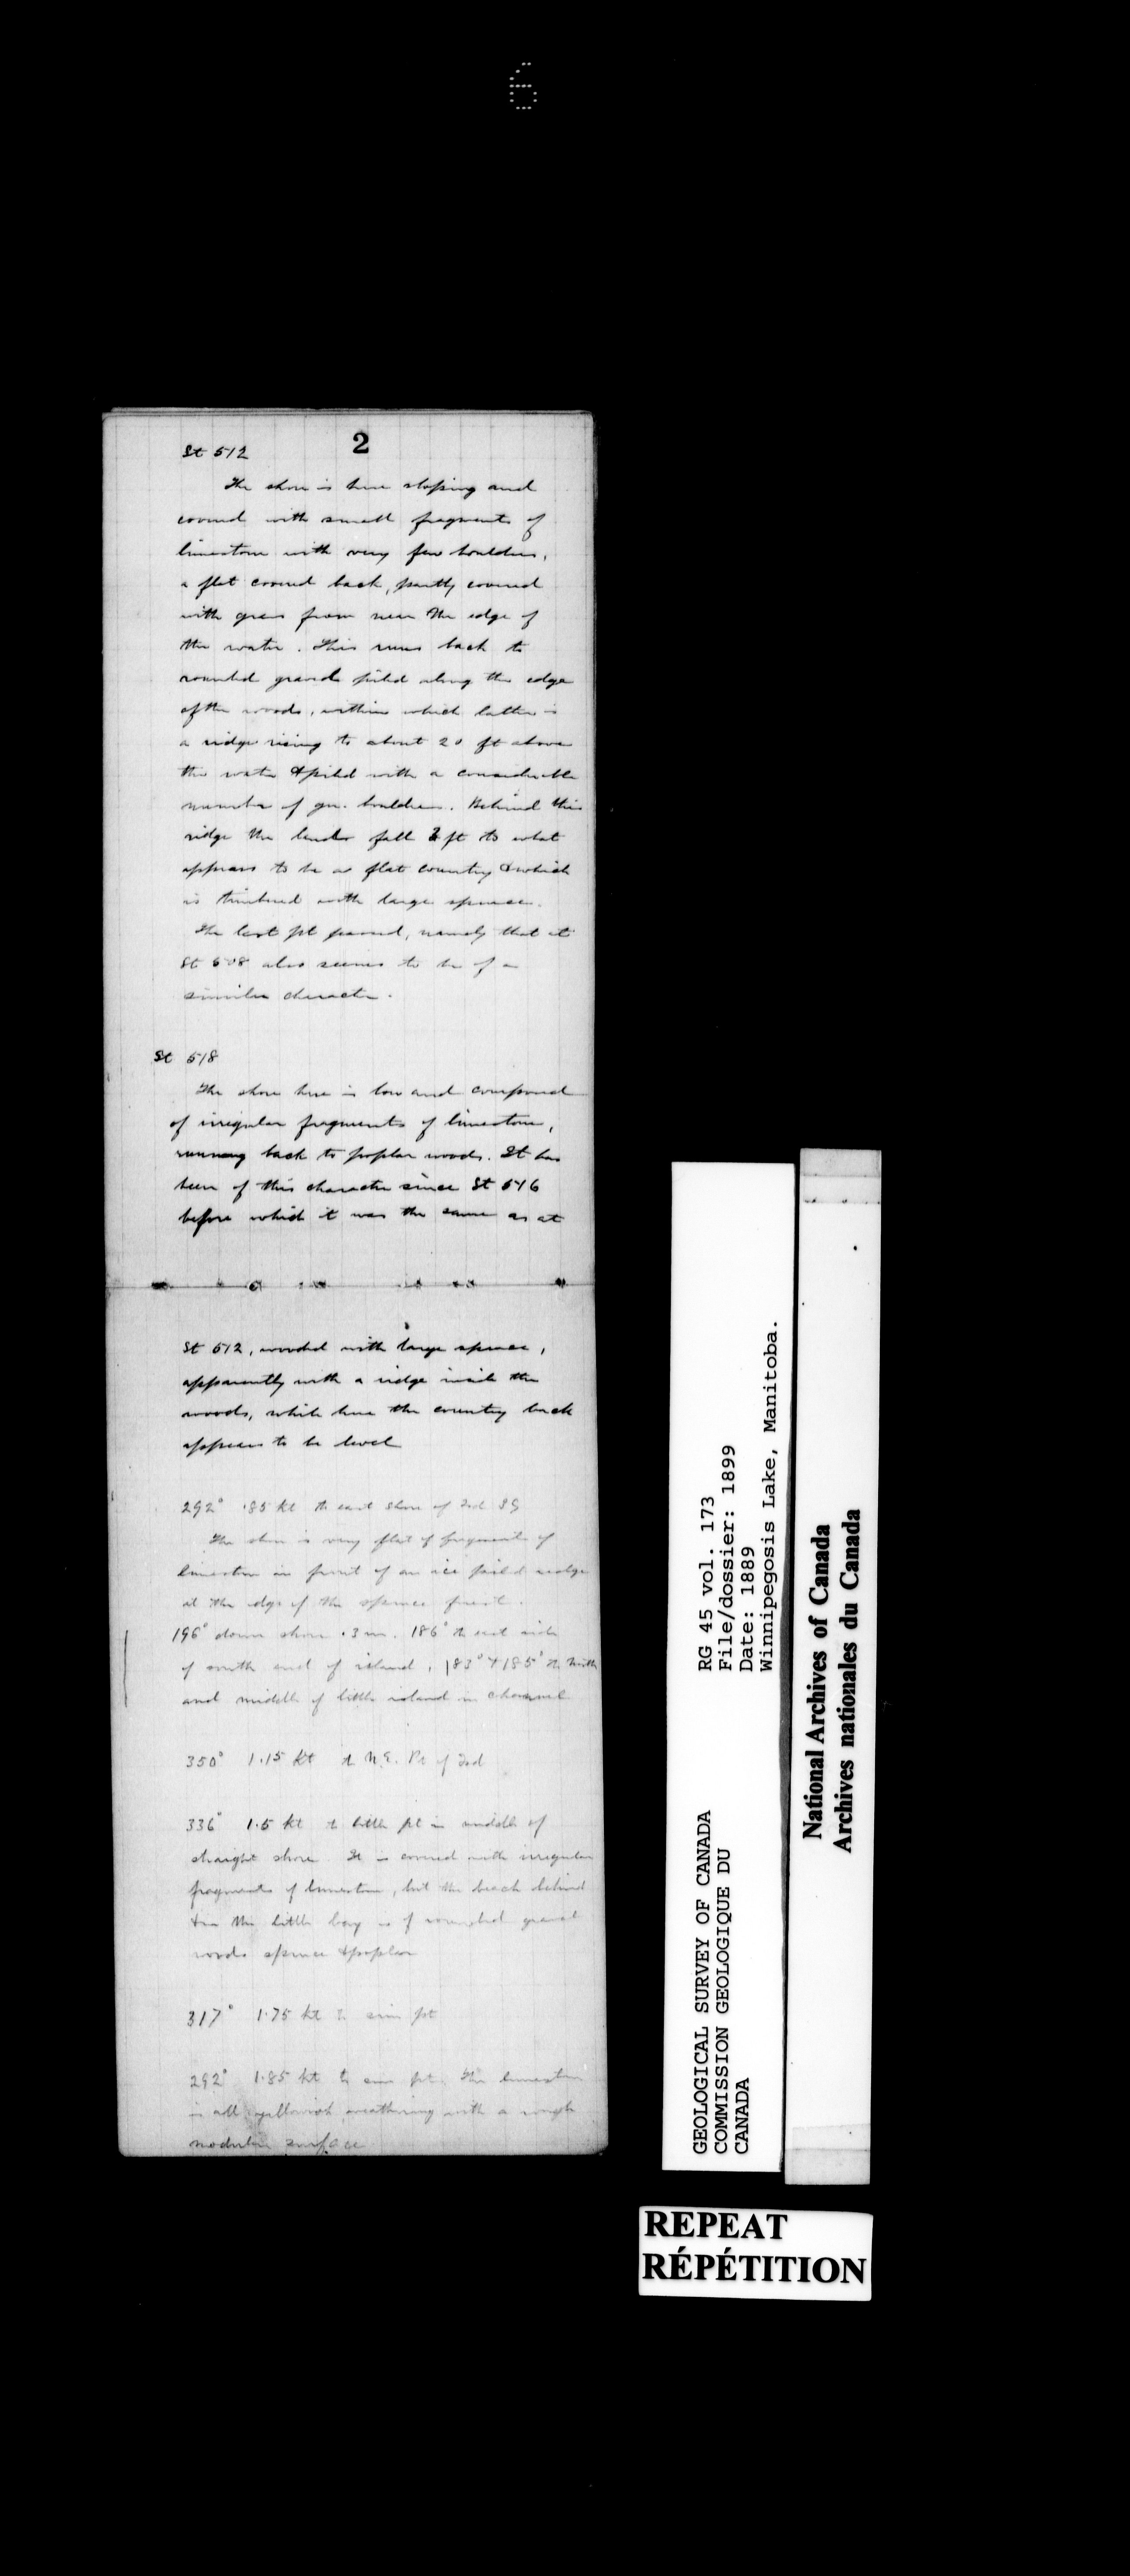 6
2
St 512
The shore is here sloping and
covered with small fragments of
limestone with very few boulders,
a flat covered back, partly covered
with grass from near the edge of
the water. This runs back to
rounded gravel piled along the edge
of the woods, within which latter is
a ridge rising to about 20 ft above
the water & piled with a considerable
number of gn. boulders. Behind this
ridge the land falls 3 ft to what
appears to be a flat country & which
is timbered with large spruce.
The last pt passed, namely that at
St 508 also seems to be of a
similar character.
St 518
The shore here is low and composed
of irregular fragments of limestone,
running back to poplar woods. It has
been of this character since St 516
before which it was the same as at
St 512, wooded with large spruce,
apparently with a ridge inside the
woods, while here the country back
appears to be level
292° .85 kt to east shore of
The shore is very flat of fragments of
limestone in front of an ice piled ridge
at the edge of the spruce forest.
196° down shore .3 m. 186° to east side
of south end of island, 183° & 185° to north
and middle of little island in channel
350° 1.15 kt to N.E. Pt of
336° 1.5 kt to little pt in middle of
straight shore. It is covered with irregular
fragments of limestone, but the beach behind
& in the little bay is of rounded gravel
woods spruce & poplar
317° 1.75 kt to sim pt
292° 1.85 kt to sim pt. The limestone
is all yellowish weathering with a rough
nodular surface
GEOLOGICAL SURVEY OF CANADA
COMMISSION GEOLOGIQUE DU
CANADA
RG 45 vol. 173
File/dossier: 1899
Date: 1889
Winnipegosis Lake, Manitoba.
National Archives of Canada
Archives nationales du Canada
REPEAT
RÉPÉTITION